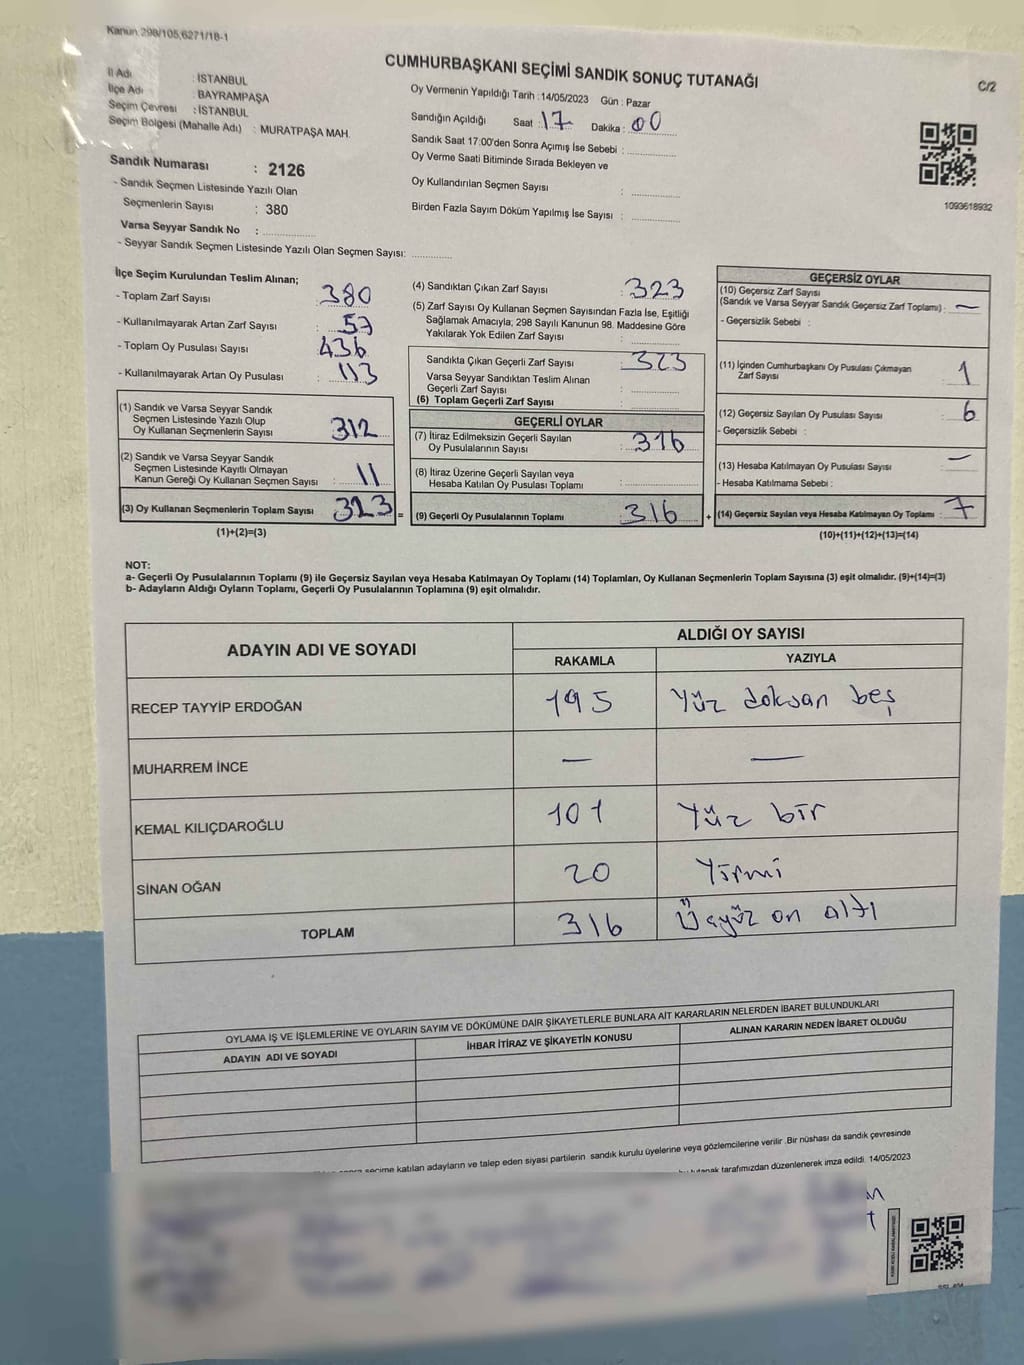 Kanun 298/105,6271/18-1
CUMHURBAŞKANI SEÇİMİ SANDIK SONUÇ TUTANAĞI
C/2
İl Adı : İSTANBUL
İlçe Adı : BAYRAMPAŞA
Seçim Çevresi : İSTANBUL
Seçim Bölgesi (Mahalle Adı) : MURATPAŞA MAH.
Sandık Numarası : 2126
- Sandık Seçmen Listesinde Yazılı Olan
Seçmenlerin Sayısı : 380
Varsa Seyyar Sandık No :
- Seyyar Sandık Seçmen Listesinde Yazılı Olan Seçmen Sayısı:
Oy Vermenin Yapıldığı Tarih : 14/05/2023 Gün : Pazar
Sandığın Açıldığı Saat : 17 Dakika : 00
Sandık Saat 17:00'den Sonra Açımış İse Sebebi :
Oy Verme Saati Bitiminde Sırada Bekleyen ve
Oy Kullandırılan Seçmen Sayısı :
Birden Fazla Sayım Döküm Yapılmış İse Sayısı :
1093618932
İlçe Seçim Kurulundan Teslim Alınan;
- Toplam Zarf Sayısı : 380
- Kullanılmayarak Artan Zarf Sayısı : 57
- Toplam Oy Pusulası Sayısı : 436
- Kullanılmayarak Artan Oy Pusulası : 113
(1) Sandık ve Varsa Seyyar Sandık
Seçmen Listesinde Yazılı Olup
Oy Kullanan Seçmenlerin Sayısı : 312
(2) Sandık ve Varsa Seyyar Sandık
Seçmen Listesinde Kayıtlı Olmayan
Kanun Gereği Oy Kullanan Seçmen Sayısı : 11
(3) Oy Kullanan Seçmenlerin Toplam Sayısı : 323 =
(1)+(2)=(3)
(4) Sandıktan Çıkan Zarf Sayısı : 323
(5) Zarf Sayısı Oy Kullanan Seçmen Sayısından Fazla İse, Eşitliği
Sağlamak Amacıyla; 298 Sayılı Kanunun 98. Maddesine Göre
Yakılarak Yok Edilen Zarf Sayısı :
Sandıkta Çıkan Geçerli Zarf Sayısı : 323
Varsa Seyyar Sandıktan Teslim Alınan
Geçerli Zarf Sayısı :
(6) Toplam Geçerli Zarf Sayısı :
GEÇERLİ OYLAR
(7) İtiraz Edilmeksizin Geçerli Sayılan
Oy Pusulalarının Sayısı : 316
(8) İtiraz Üzerine Geçerli Sayılan veya
Hesaba Katılan Oy Pusulası Toplamı :
(9) Geçerli Oy Pusulalarının Toplamı : 316 +
GEÇERSİZ OYLAR
(10) Geçersiz Zarf Sayısı
(Sandık ve Varsa Seyyar Sandık Geçersiz Zarf Toplamı) : —
- Geçersizlik Sebebi :
(11) İçinden Cumhurbaşkanı Oy Pusulası Çıkmayan
Zarf Sayısı : 1
(12) Geçersiz Sayılan Oy Pusulası Sayısı : 6
- Geçersizlik Sebebi :
(13) Hesaba Katılmayan Oy Pusulası Sayısı : —
- Hesaba Katılmama Sebebi :
(14) Geçersiz Sayılan veya Hesaba Katılmayan Oy Toplamı : 7
(10)+(11)+(12)+(13)=(14)
NOT:
a- Geçerli Oy Pusulalarının Toplamı (9) ile Geçersiz Sayılan veya Hesaba Katılmayan Oy Toplamı (14) Toplamları, Oy Kullanan Seçmenlerin Toplam Sayısına (3) eşit olmalıdır. (9)+(14)=(3)
b- Adayların Aldığı Oyların Toplamı, Geçerli Oy Pusulalarının Toplamına (9) eşit olmalıdır.
ADAYIN ADI VE SOYADI ALDIĞI OY SAYISI
RAKAMLA YAZIYLA
RECEP TAYYİP ERDOĞAN 195 Yüz doksan beş
MUHARREM İNCE — —
KEMAL KILIÇDAROĞLU 101 Yüz bir
SİNAN OĞAN 20 Yirmi
TOPLAM 316 Üçyüz on altı
OYLAMA İŞ VE İŞLEMLERİNE VE OYLARIN SAYIM VE DÖKÜMÜNE DAİR ŞİKAYETLERLE BUNLARA AİT KARARLARIN NELERDEN İBARET BULUNDUKLARI
ADAYIN ADI VE SOYADI İHBAR İTİRAZ VE ŞİKAYETİN KONUSU ALINAN KARARIN NEDEN İBARET OLDUĞU
seçime katılan adayların ve talep eden siyasi partilerin sandık kurulu üyelerine veya gözlemcilerine verilir .Bir nüshası da sandık çevresinde
tutanak tarafımızdan düzenlenerek imza edildi. 14/05/2023